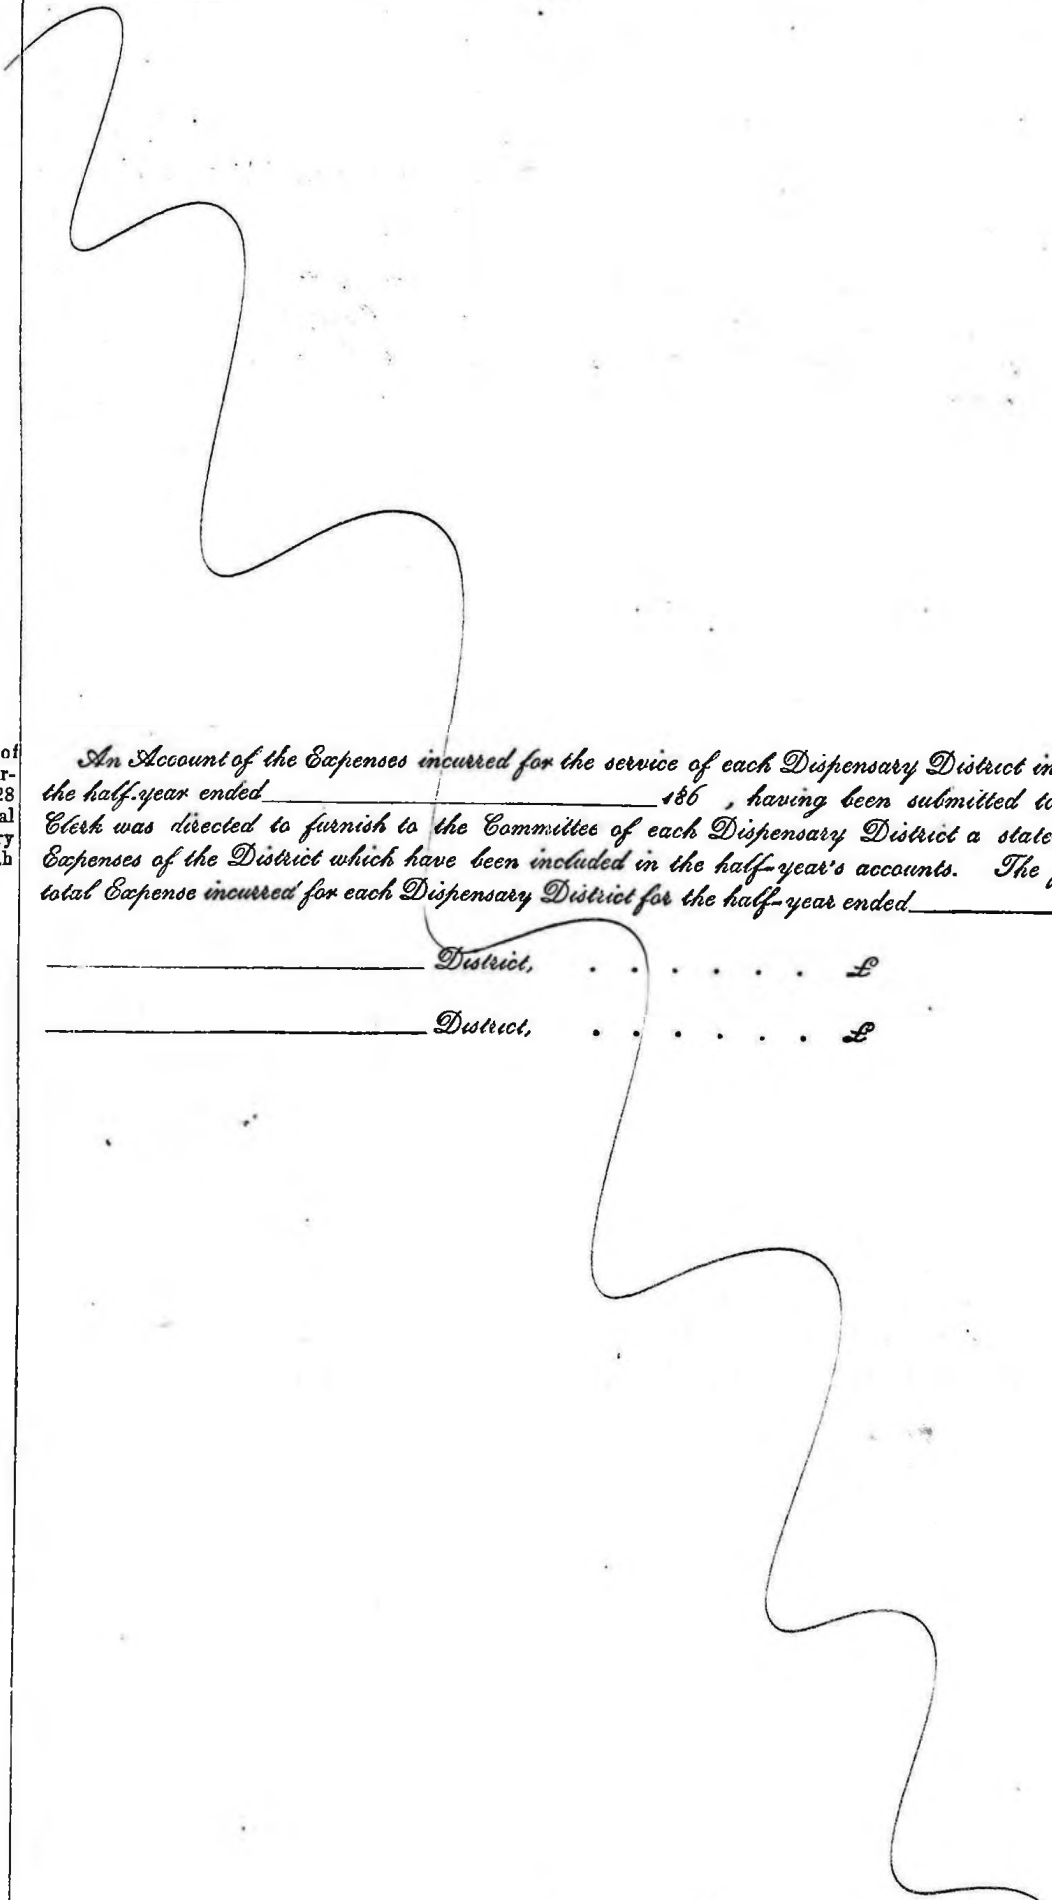 of
r-
28
al
ry
h
An Account of the Expenses incurred for the service of each Dispensary District in
the half-year ended 186 , having been submitted to
Clerk was directed to furnish to the Committee of each Dispensary District a state
Expenses of the District which have been included in the half-year's accounts. The
total Expense incurred for each Dispensary District for the half-year ended
District, . . . . . . £
District, . . . . . . £